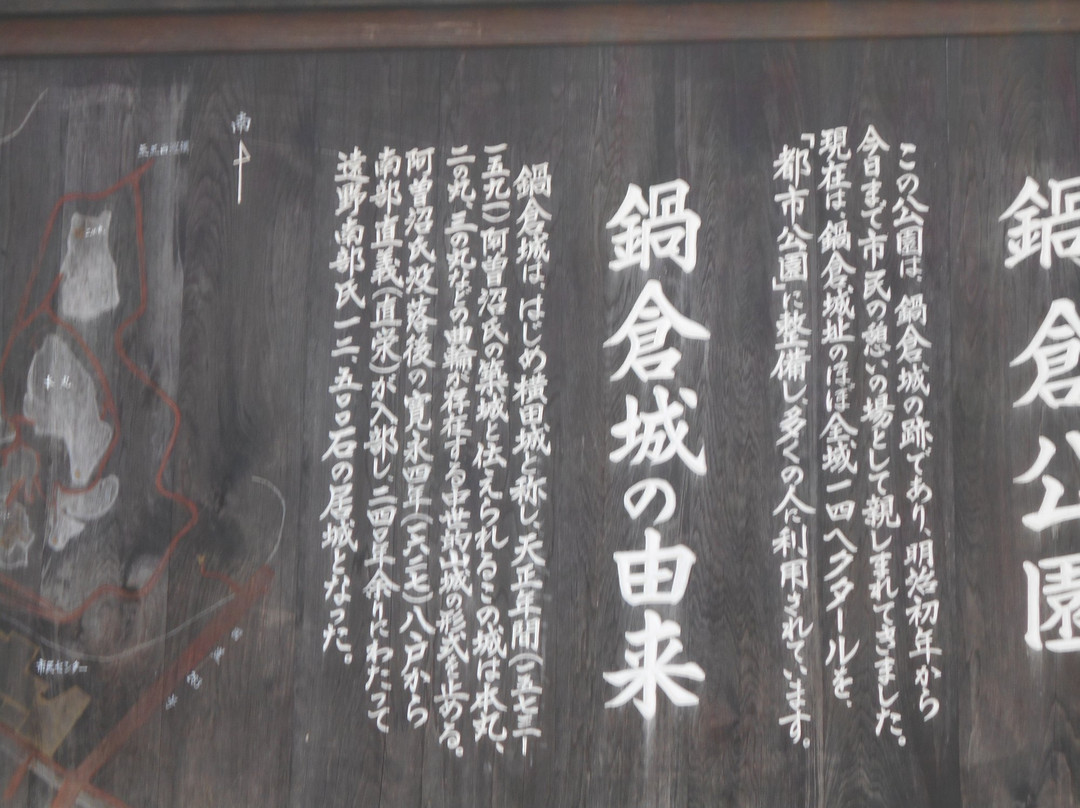 鍋倉公園
この公園は、鍋倉城の跡であり、明治初年から
今日まで市民の憩いの場として親しまれてきました。
現在は、鍋倉城址のほぼ全域一四ヘクタールを、
「都市公園」に整備し、多くの人に利用されています。
鍋倉城の由来
鍋倉城は、はじめ横田城と称し、天正年間(一五七三ー
一五九一)阿曽沼氏の築城と伝えられるこの城は本丸、
二の丸、三の丸などの曲輪が存在する中世的山城の形式を止める。
阿曽沼氏没落後の寛永四年(一六二七)八戸から
南部直義(直栄)が入部し、二四〇年余りにわたって
遠野南部氏一二、五〇〇石の居城となった。
南
三の丸
本丸
市民センター